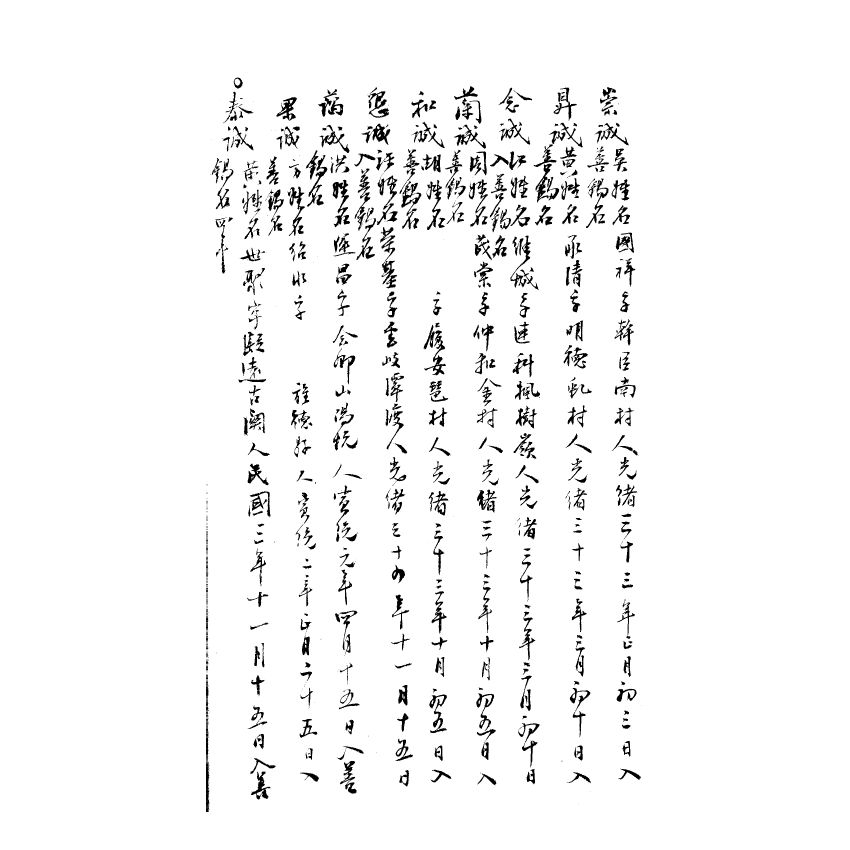 崇诚 吴姓名國祥字幹臣南村人光绪三十三年正月初三日入
善錫名
昇诚 黄姓名永清字明德乱村人光绪三十三年三月初十日入
善錫名
念诚 江姓名維城字連科楓樹嶺人光绪三十三年三月初十日
入善錫名
蘭诚 周姓名茂棠字仲和金村人光绪三十三年十月初五日入
善錫名
和诚 胡姓名 字履安琶村人光绪三十三年十月初五日入
善錫名
懇诚 汪姓名荣基字雲岐潭渡人光绪三十四年十一月十五日
入善錫名
蔼诚 洪姓名運昌字会卿山湯坑人宣统元年四月十五日入善
錫名
果诚 方姓名绍 字 旌德县人宣统二年正月二十五日入
善錫名
泰诚 黄姓名世聚字凝遠古關人民國三年十一月十五日入善
錫名